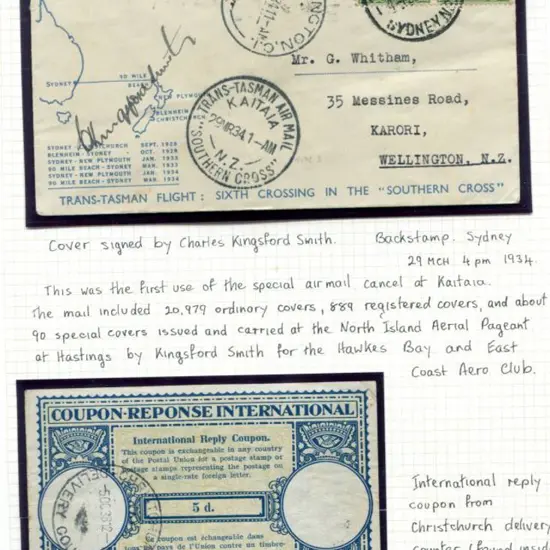 INGTON.C.
11-AM
SYDNEY N.
Mr. G. Whitham,
35 Messines Road,
KARORI,
WELLINGTON, N.Z.
SYDNEY
90 MILE
BEACH
NEW PLYMOUTH
BLENHEIM
CHRISTCHURCH
TRANS-TASMAN AIR MAIL
KAITAIA
29MR34.1-AM
N.Z.
"SOUTHERN CROSS"
SYDNEY-CHRISTCHURCH SEPT. 1928
BLENHEIM-SYDNEY OCT. 1928
SYDNEY-NEW PLYMOUTH JAN. 1933
90 MILE BEACH-SYDNEY MAR. 1933
SYDNEY-NEW PLYMOUTH JAN. 1934
90 MILE BEACH-SYDNEY MAR. 1934
TRANS-TASMAN FLIGHT: SIXTH CROSSING IN THE "SOUTHERN CROSS"
Cover signed by Charles Kingsford Smith. Backstamp. Sydney
29 MCH 4pm 1934.
This was the first use of the special airmail cancel at Kaitaia.
The mail included 20,979 ordinary covers, 889 registered covers, and about
90 special covers issued and carried at the North Island Aerial Pageant
at Hastings by Kingsford Smith for the Hawkes Bay and East
Coast Aero Club.
COUPON-REPONSE INTERNATIONAL
International Reply Coupon.
This coupon is exchangeable in any country
of the Postal Union for a postage stamp or
postage stamps representing the postage on
a single-rate foreign letter.
5 d.
Ce coupon est échangeable dans
pays de l'Union contre un timbre-
DELIVERY
International reply
coupon from
Christchurch delivery
counter (found insid